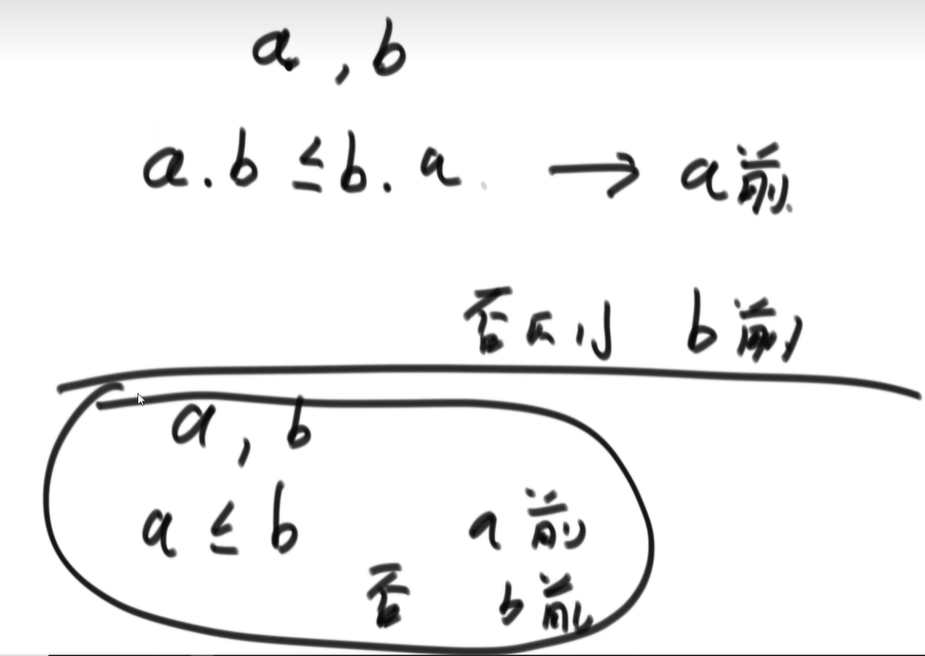 a , b
a.b ≤ b.a. → a前.
否则 b前
a , b
a ≤ b a前
否 b前